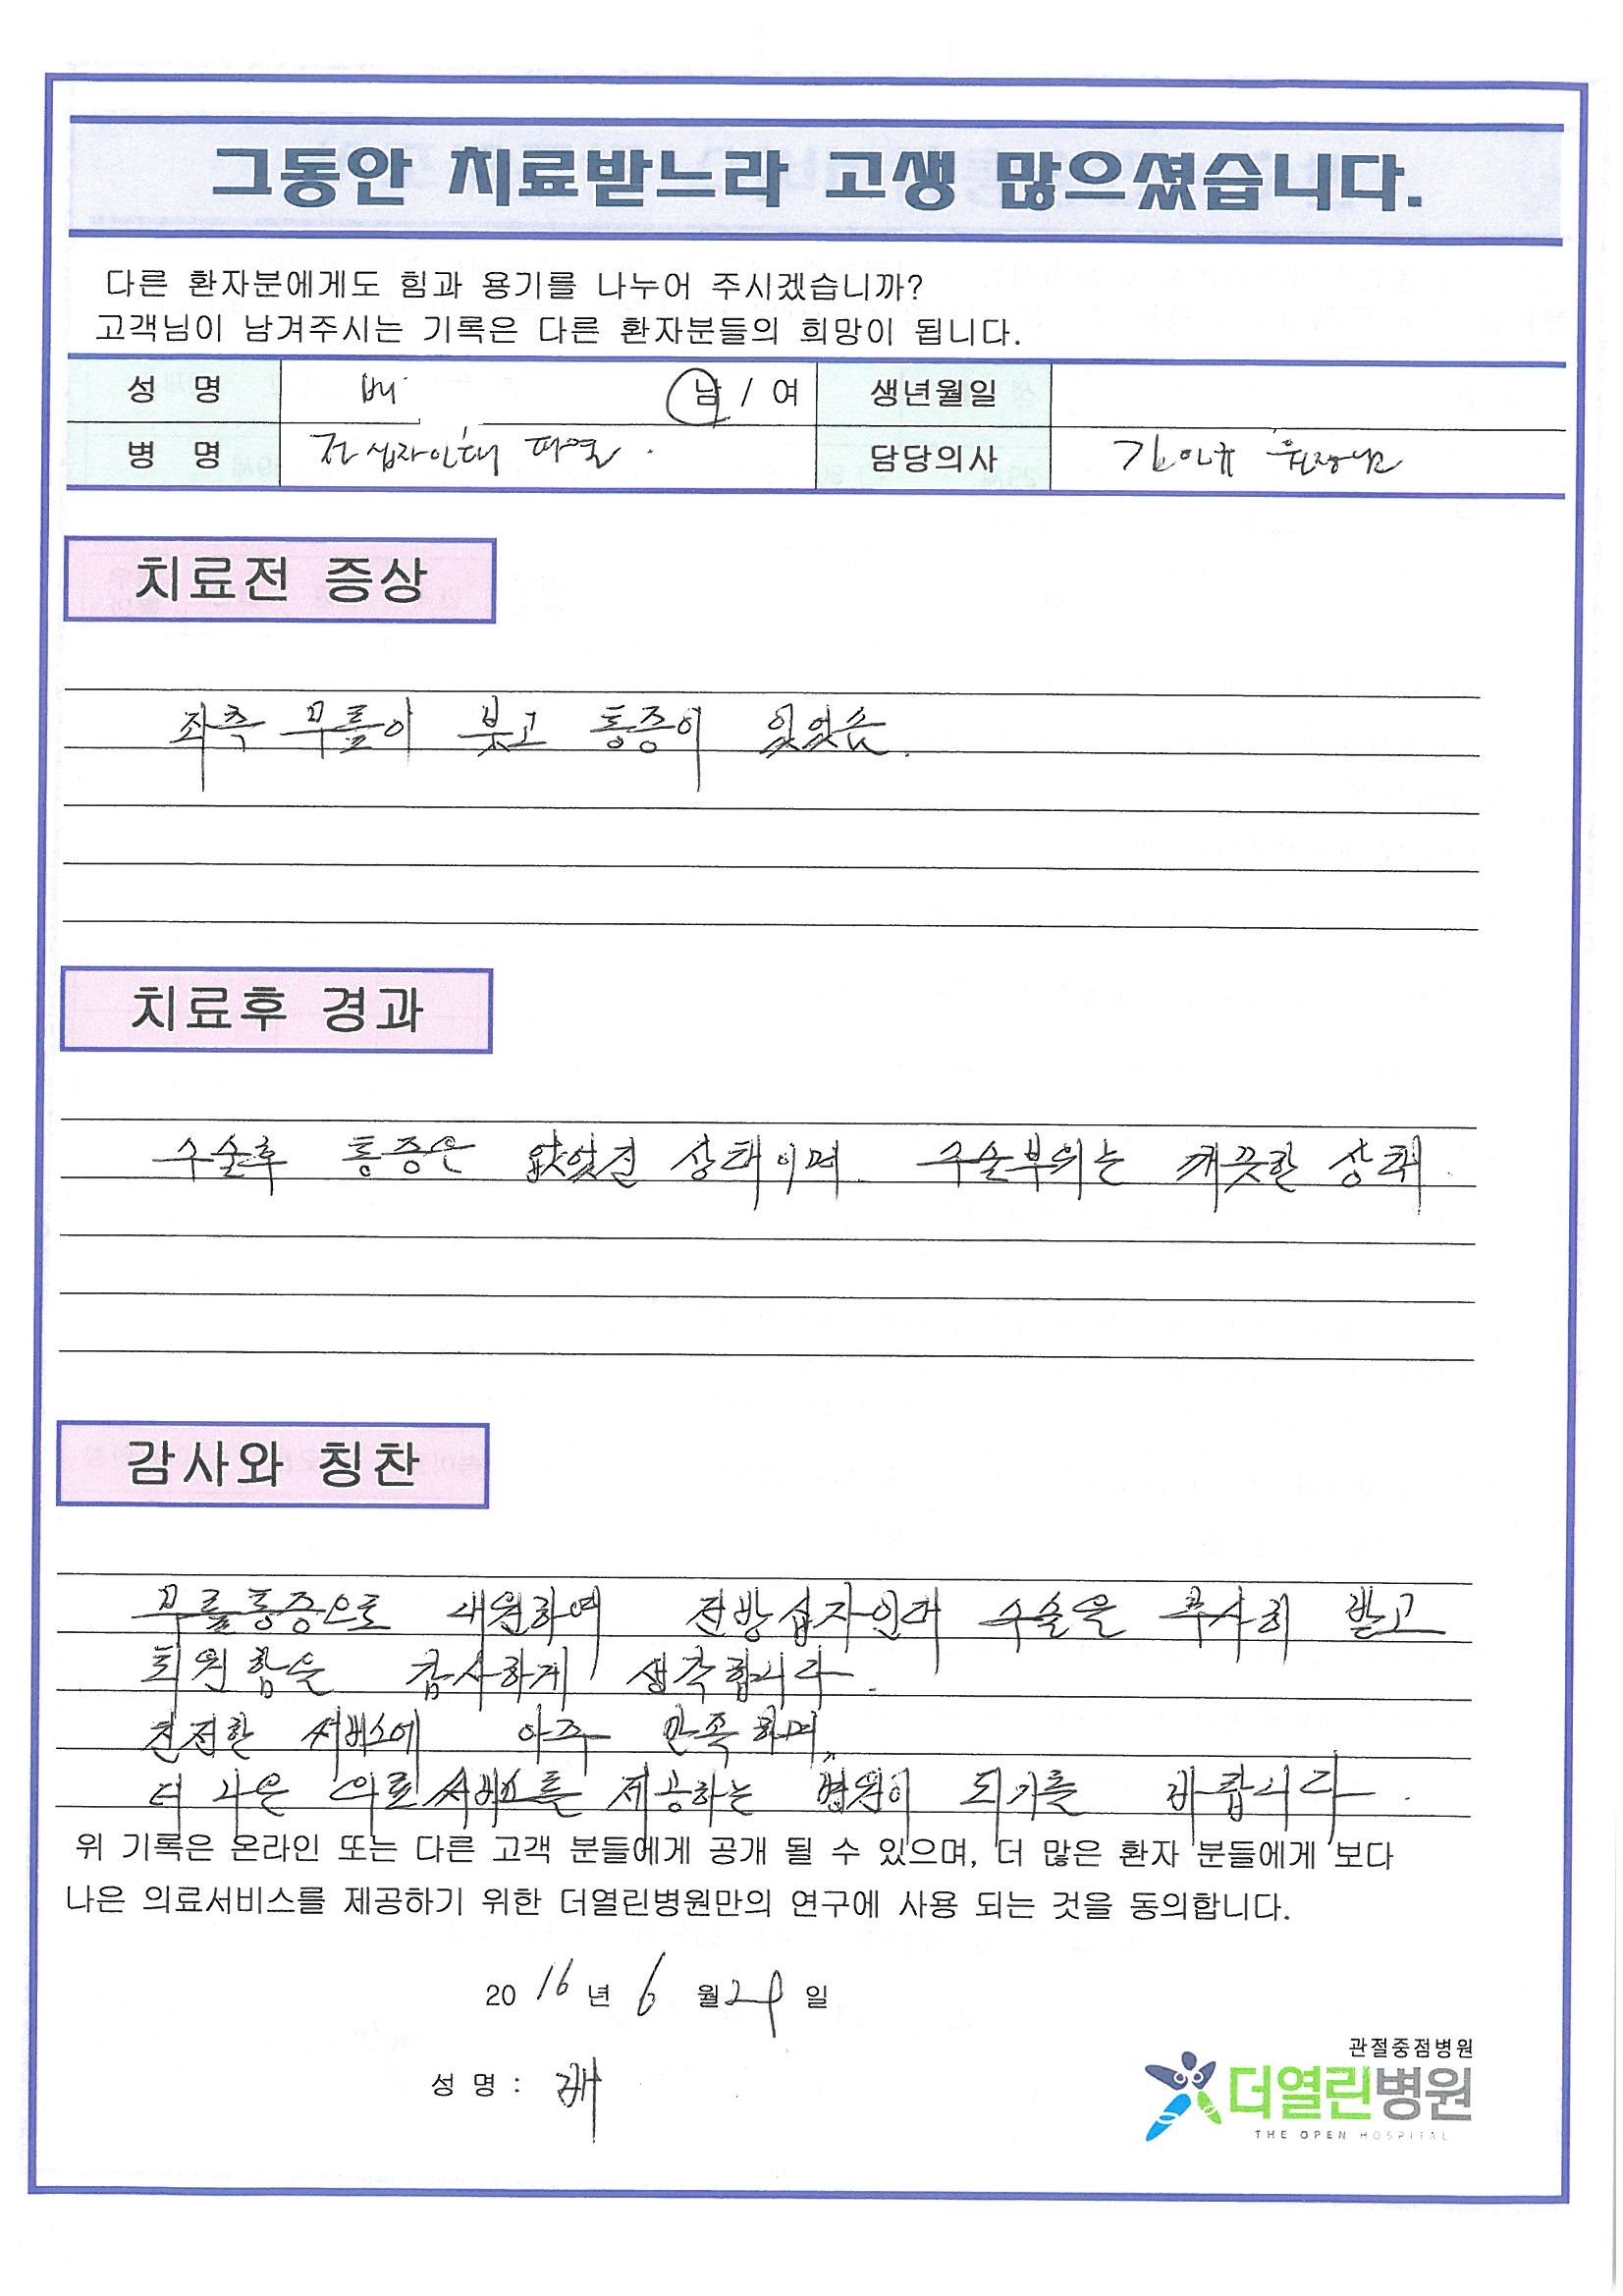 그동안 치료받느라 고생 많으셨습니다.
다른 환자분에게도 힘과 용기를 나누어 주시겠습니까?
고객님이 남겨주시는 기록은 다른 환자분들의 희망이 됩니다.
성 명 배 남 / 여 생년월일
병 명 전십자인대 파열. 담당의사 김인규 원장님
치료전 증상
좌측 무릎이 붓고 통증이 있었음.
치료후 경과
수술후 통증은 없었진 상태이며 수술부위는 깨끗한 상태.
감사와 칭찬
무릎통증으로 내원하여 전방십자인대 수술을 무사히 받고
퇴원함을 감사하게 생각합니다.
친절한 서비스에 아주 만족하며,
더 나은 의료서비스를 제공하는 병원이 되기를 바랍니다.
위 기록은 온라인 또는 다른 고객 분들에게 공개 될 수 있으며, 더 많은 환자 분들에게 보다
나은 의료서비스를 제공하기 위한 더열린병원만의 연구에 사용 되는 것을 동의합니다.
2016년 6월 29일
성 명 : 배
관절중점병원
더열린병원
THE OPEN HOSPITAL